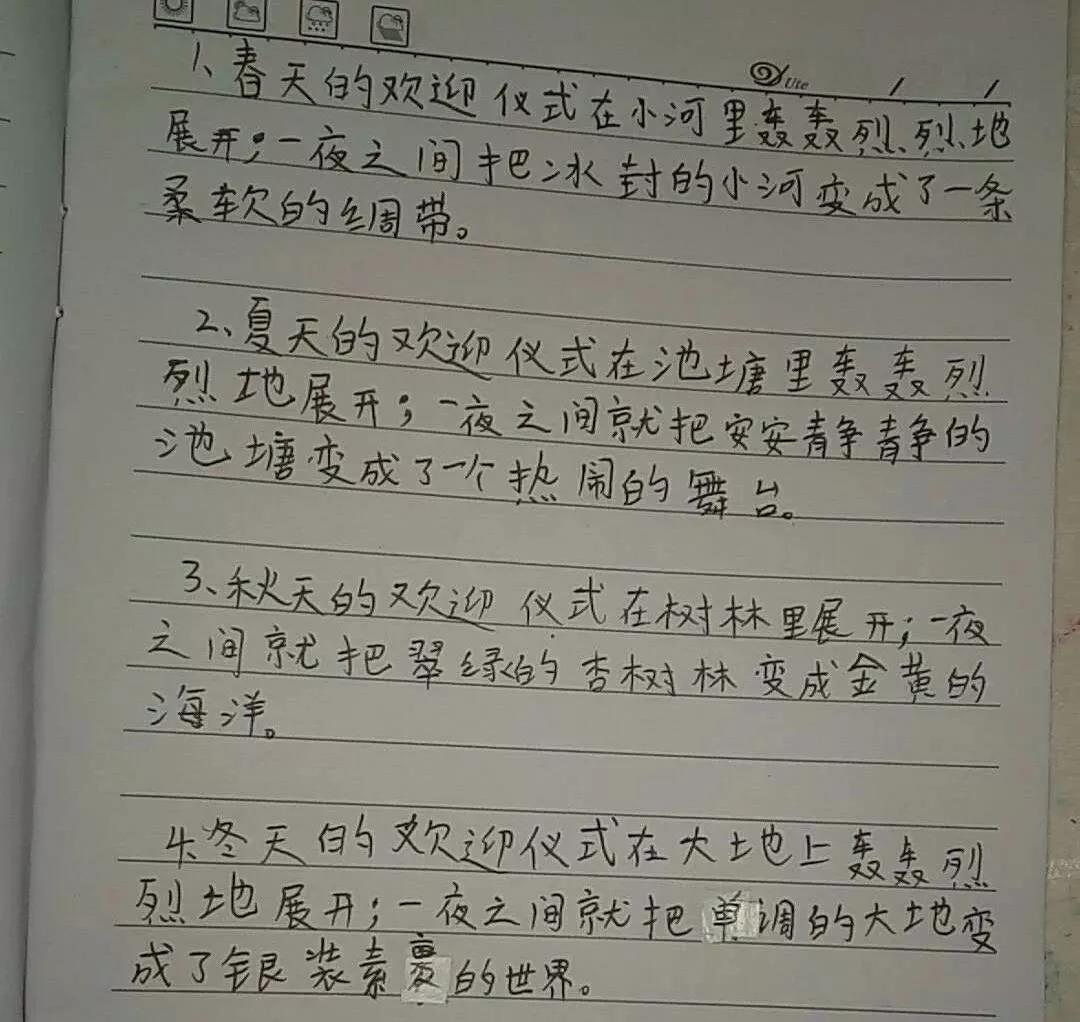 Ute / /
1、春天的欢迎仪式在小河里轰轰烈烈地
展开;一夜之间把冰封的小河变成了一条
柔软的绸带。
2、夏天的欢迎仪式在池塘里轰轰烈
烈地展开;一夜之间就把安安静静的
池塘变成了一个热闹的舞台。
3、秋天的欢迎仪式在树林里展开;一夜
之间就把翠绿的杏树林变成金黄的
海洋。
4、冬天的欢迎仪式在大地上轰轰烈
烈地展开;一夜之间就把单调的大地变
成了银装素裹的世界。